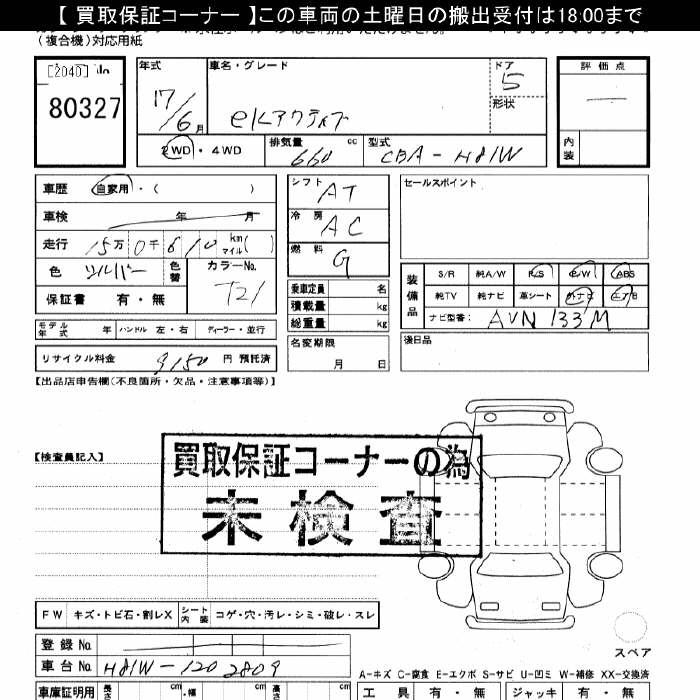 【 買取保証コーナー 】この車両の土曜日の搬出受付は18:00まで
(複合機)対応用紙
[2040] No
80327
年式
17/6月
車名・グレード
eKアクティブ
ドア
5
形状
評価点
内装
2WD・4WD
排気量
660 cc
型式
CBA-H81W
車歴 自家用・( )
車検 年 月
走行 15万0千610 km マイル( )
色 シルバー 色替 カラーNo. T21
保証書 有・無
モデル年式 年 ハンドル 左・右 ディーラー・並行
リサイクル料金 9150 円 預託済
シフト AT
冷房 AC
燃料 G
乗車定員 名
積載量 kg
総重量 kg
名変期限
月 日
セールスポイント
装備品
S/R 純A/W P/S P/W ABS
純TV 純ナビ 革シート 外ナビ エアB
ナビ型番: AVN 133M
後日品
【出品店申告欄(不良箇所・欠品・注意事項等)】
【検査員記入】
買取保証コーナーの為
未検査
FW キズ・トビ石・割レX シート内装 コゲ・穴・汚レ・シミ・破レ・スレ
登録No.
車台No. H81W-1202809
スペア
A-キズ C-腐食 E-エクボ S-サビ U-凹ミ W-補修 XX-交換済
車庫証明用 長さ cm 幅 cm 高さ cm
工具 有・無 ジャッキ 有・無